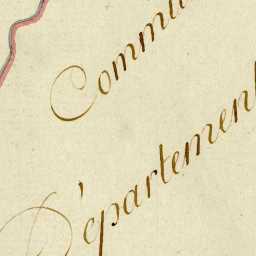 Commu
Département